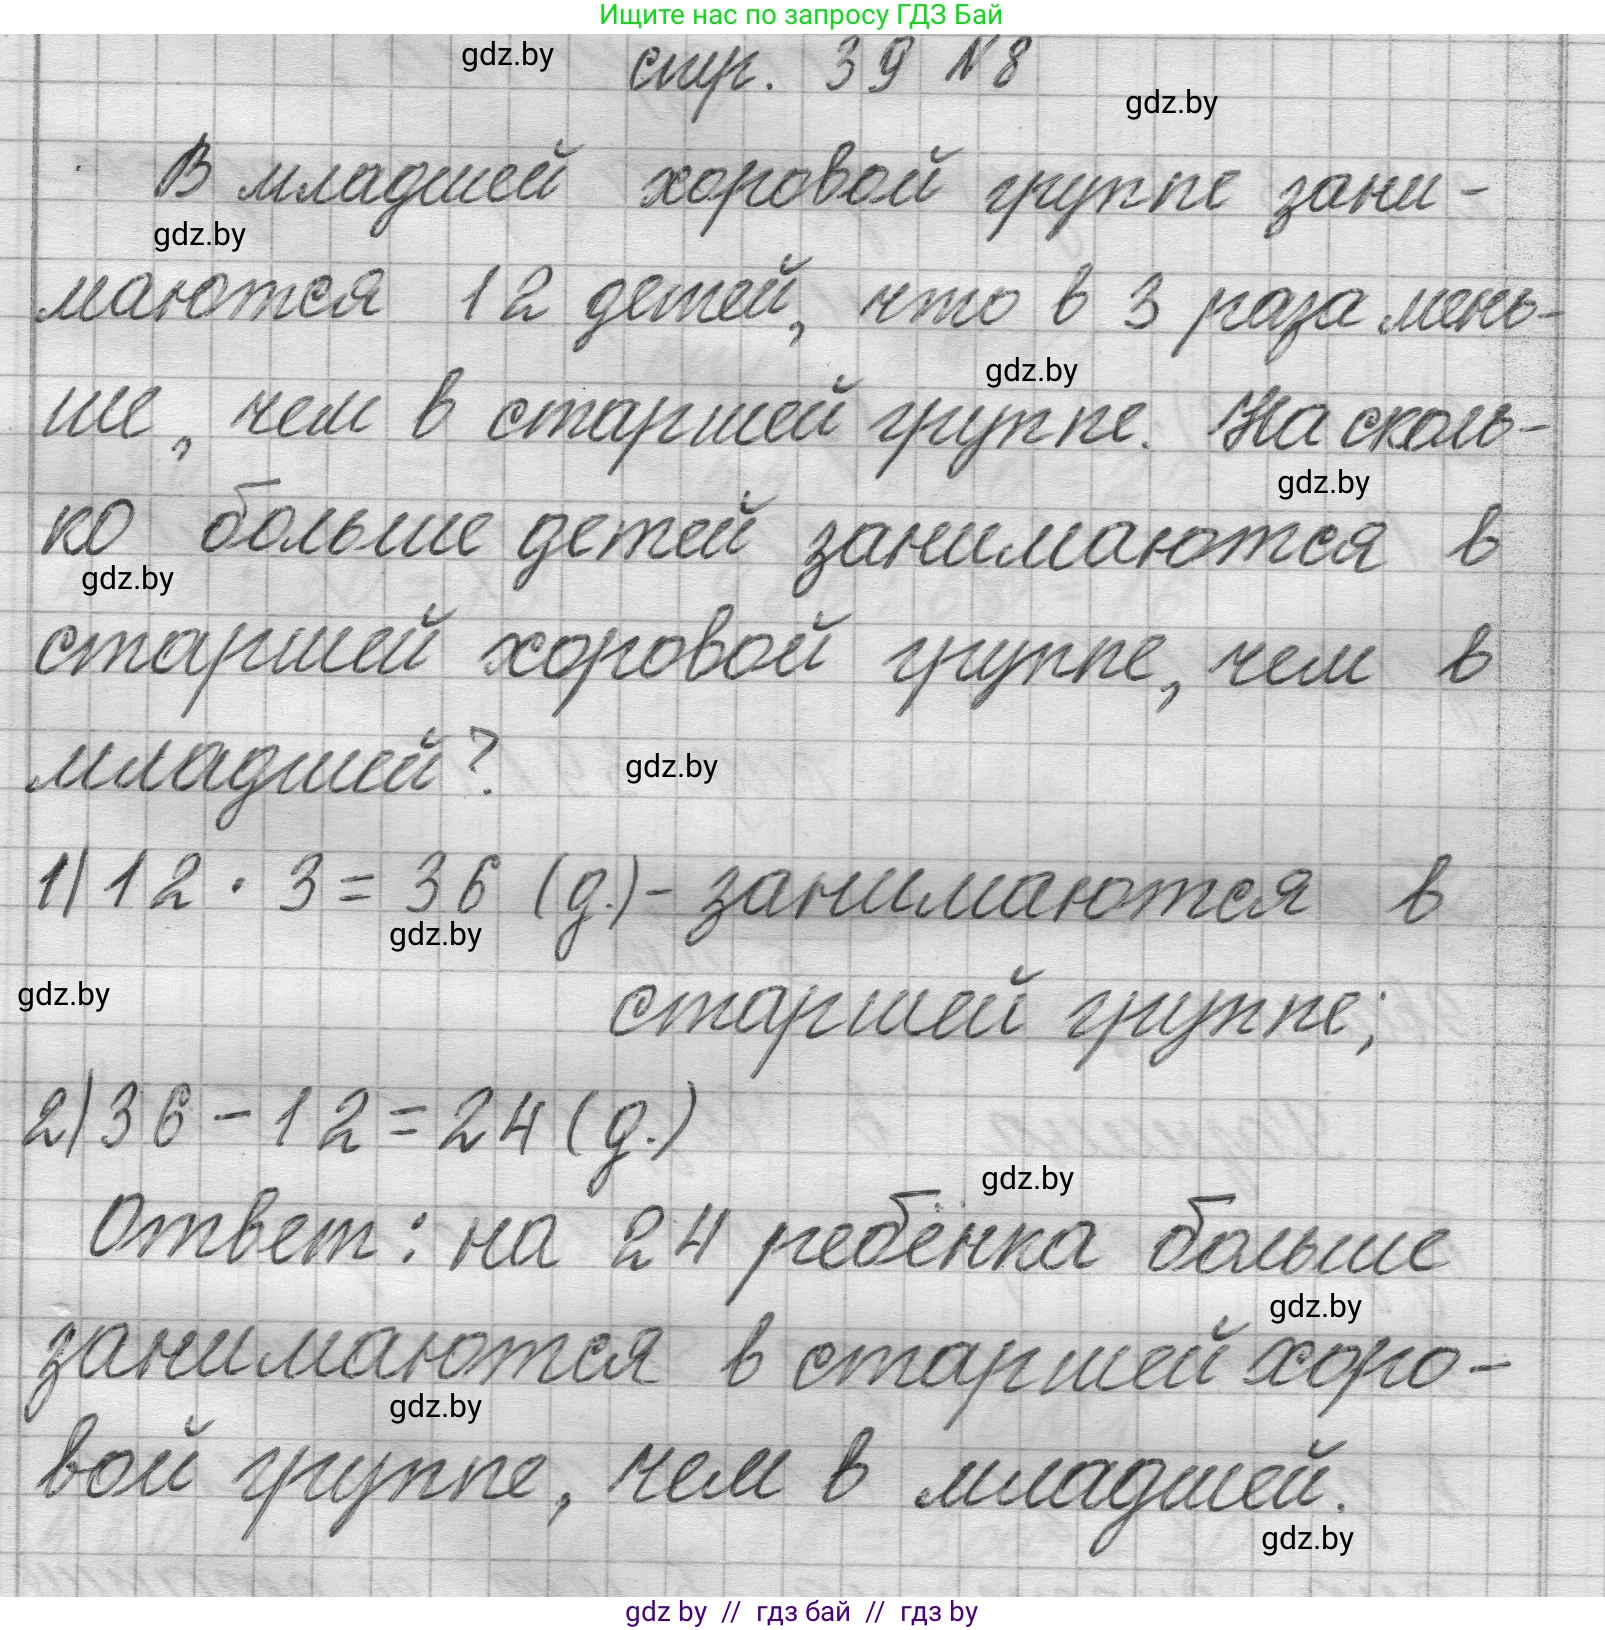 Ищите нас по запросу ГДЗ Бай
gdz.by
стр. 39 №8
gdz.by
В младшей хоровой группе зани-
gdz.by
маются 12 детей, что в 3 раза мень-
gdz.by
ше, чем в старшей группе. На сколь-
gdz.by
ко больше детей занимаются в
gdz.by
старшей хоровой группе, чем в
младшей?
gdz.by
1) 12 · 3 = 36 (д.) - занимаются в
gdz.by
gdz.by
старшей группе;
2) 36 - 12 = 24 (д.)
gdz.by
Ответ: на 24 ребёнка больше
gdz.by
занимаются в старшей хоро-
gdz.by
вой группе, чем в младшей.
gdz.by
gdz by // гдз бай // гдз by